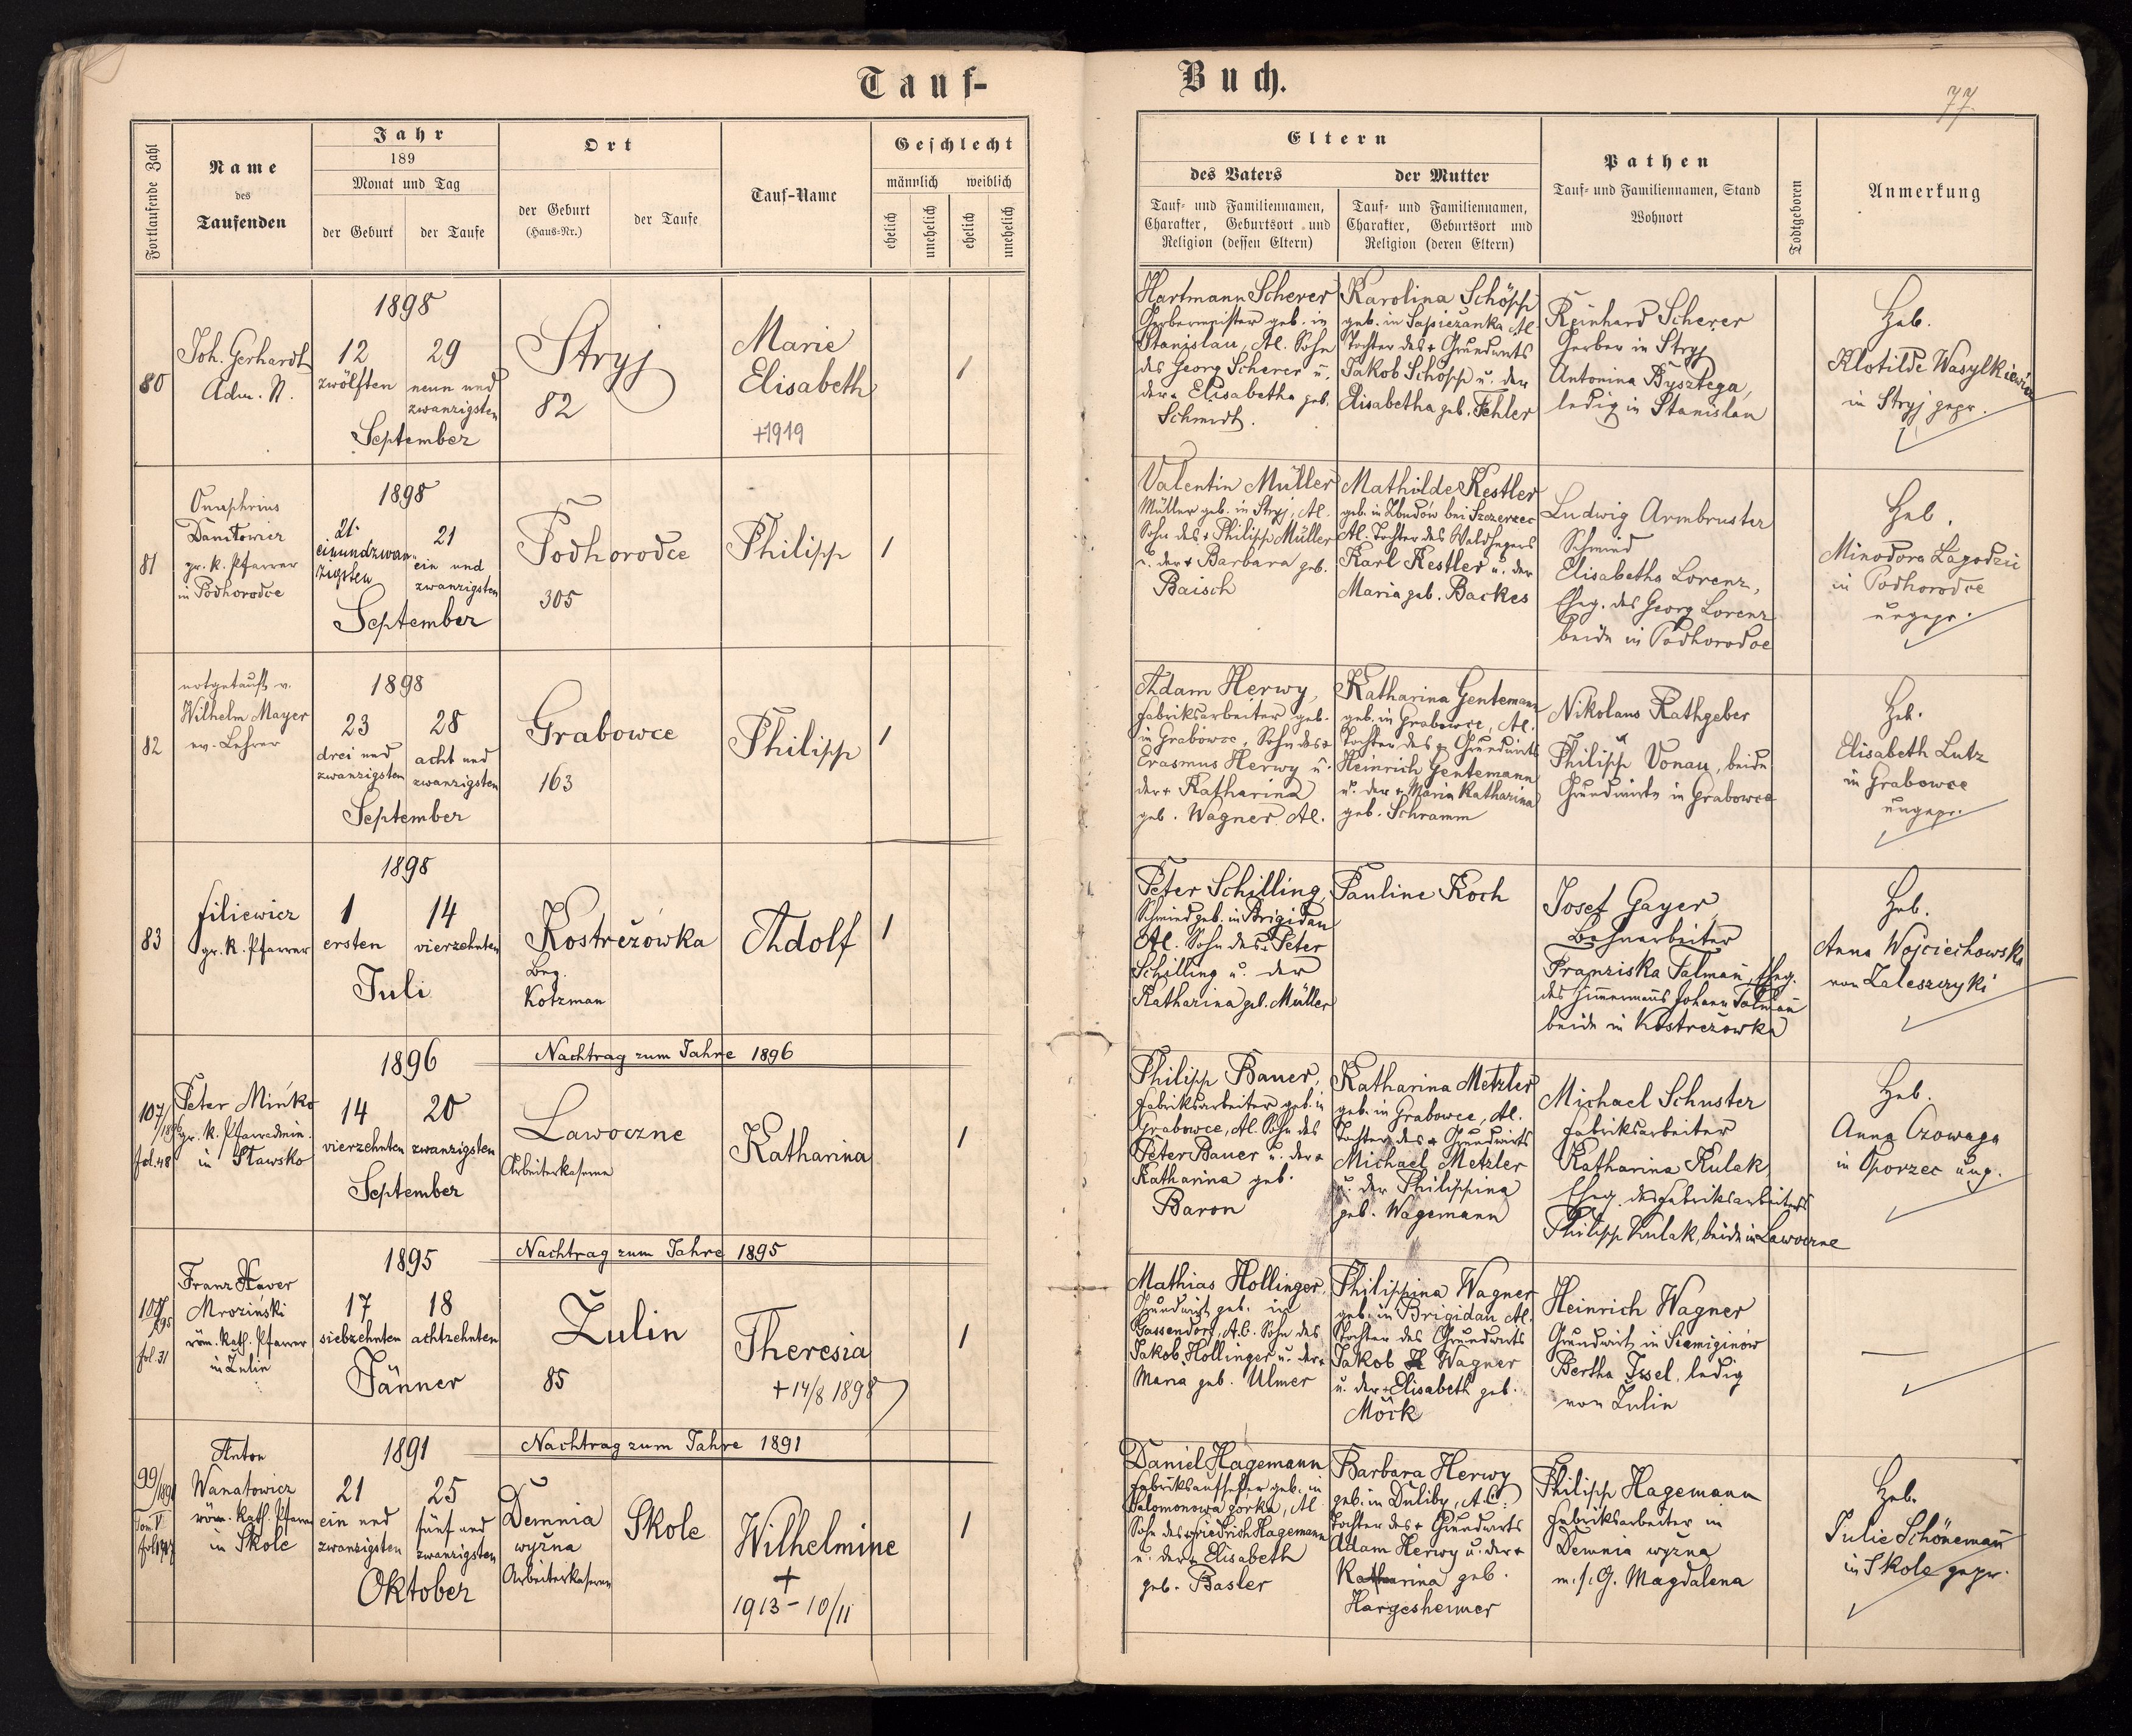 Tauf-
Buch.
77.
Fortlaufende Zahl
Name
des
Taufenden
Jahr
189
Monat und Tag
der Geburt
der Taufe
Ort
der Geburt
(Haus-Nr.)
der Taufe
Tauf-Name
Geschlecht
männlich
weiblich
ehelich
unehelich
ehelich
unehelich
Eltern
des Vaters
Tauf- und Familiennamen,
Charakter, Geburtsort und
Religion (dessen Eltern)
der Mutter
Tauf- und Familiennamen,
Charakter, Geburtsort und
Religion (deren Eltern)
Pathen
Tauf- und Familiennamen, Stand
Wohnort
Todtgeboren
Anmerkung
80
Joh. Gerhardt
Adm. N.
1898
12
zwölften
29
neun und
zwanzigsten
September
Stryj
82
Marie
Elisabeth
+1919
1
Hartmann Scherer
Gerbermeister geb. in
Stanislau, Al. Sohn
des Georg Scherer u.
der + Elisabetha geb.
Schmidt.
Karolina Schöpp
geb. in Sapieżanka Al
Tochter des + Grundwirts
Jakob Schöpp u. der
Elisabetha geb. Fehler
Reinhard Scherer
Gerber in Stryj
Antonina Bysztega,
ledig in Stanislau
Heb.
Klotilde Wasylkiewicz
in Stryj gepr.
81
Onuphrius
Danitowicz
gr. k. Pfarrer
in Podhorodce
1898
21
einundzwan-
zigsten
21
ein und
zwanzigsten
September
Podhorodce
305
Philipp
1
Valentin Müller
Müller geb. in Stryj, Al.
Sohn des + Philipp Müller
u. der + Barbara geb.
Baisch
Mathilde Kestler
geb. in Zbudow bei Szczerzec
Al. Tochter des Waldhegers
Karl Kestler u. der
Maria geb. Backes
Ludwig Armbruster
Schmied
Elisabetha Lorenz,
Eheg. des Georg Lorenz
beide in Podhorodce
Heb.
Minodora Łagodzic
in Podhorodce
ungepr.
82
notgetauft v.
Wilhelm Mayer
ev. Lehrer
1898
23
drei und
zwanzigsten
28
acht und
zwanzigsten
September
Grabowce
163
Philipp
1
Adam Herwy,
Fabriksarbeiter geb.
in Grabowce, Sohn des +
Erasmus Herwy u.
der + Katharina
geb. Wagner. Al.
Katharina Gentemann
geb. in Grabowce, Al.
Tochter des + Grundwirts
Heinrich Gentemann
u. der + Maria Katharina
geb. Schramm
Nikolaus Rathgeber
u
Philipp Vonau, beide
Grundwirte in Grabowce
Heb.
Elisabeth Lutz
in Grabowce
ungepr.
83
Filiewicz
gr. k. Pfarrer
1898
1
ersten
14
vierzehnten
Juli
Kostrzżówka
Bez.
Kotzman
Adolf
1
Peter Schilling,
Schmied geb. in Brigidau
Al. Sohn des Peter
Schilling u. der
Katharina geb. Müller
Pauline Koch
Josef Gayer,
Bahnarbeiter
Franziska Talman, Eheg.
des Zimmermanns Johann Talman
beide in Kostrzżowka
Heb.
Anna Wojciechowska
von Zaleszczyki
Nachtrag zum Jahre 1896
107/1896
fol. 48
Peter Mińko
gr. k. Pfarradmin.
in Sławsko
1896
14
vierzehnten
20
zwanzigsten
September
Lawoczne
Arbeiterkaserne
Katharina
1
Philipp Bauer,
Fabriksarbeiter geb. in
Grabowce, Al. Sohn des
Peter Bauer u. der +
Katharina geb.
Baron
Katharina Metzler
geb. in Grabowce, Al.
Tochter des + Grundwirts
Michael Metzler
u. der Philippina
geb. Wagemann
Michael Schuster
Fabriksarbeiter
Katharina Kulak,
Eheg. des Fabriksarbeiters
Philipp Kulak, beide in Lawoczne
Heb.
Anna Czowaga
in Oporzec ung.
Nachtrag zum Jahre 1895
fol. 31
Franz Xaver
Mroziński
röm. kath. Pfarrer
in Żulin
1895
17
siebzehnten
18
achtzehnten
Jänner
Żulin
85
Theresia
+ 14/8 1898
1
Mathias Hollinger,
Grundwirt geb. in
Gassendorf, A.C. Sohn des
Jakob Hollinger u. der +
Maria geb. Ulmer
Philippina Wagner
geb. in Brigidau Al.
Tochter des Grundwirts
Jakob Wagner
u. der + Elisabeth geb.
Möck
Heinrich Wagner
Grundwirt in Siemiginów
Bertha Issel, ledig
von Żulin
Nachtrag zum Jahre 1891
99/1891
Tom. V
Anton
Wanatowicz
röm. kath. Pfarrer
in Skole
1891
21
ein und
zwanzigsten
25
fünf und
zwanzigsten
Oktober
Demnia
wyżna
Arbeiterkaserne
Skole
Wilhelmine
+
1913 - 10/11
1
Daniel Hagemann
Fabriksaufseher geb. in
Salomonowa górka, Al
Sohn des + Friedrich Hagemann
u. der + Elisabeth
geb. Basler
Barbara Herwy
geb. in Duliby, A.C.
Tochter des + Grundwirts
Adam Herwy u. der +
Katharina geb.
Hargesheimer
Philipp Hagemann
Fabriksarbeiter in
Demnia wyżna
m. s. G. Magdalena
Heb.
Julie Schönemann
in Skole gepr.